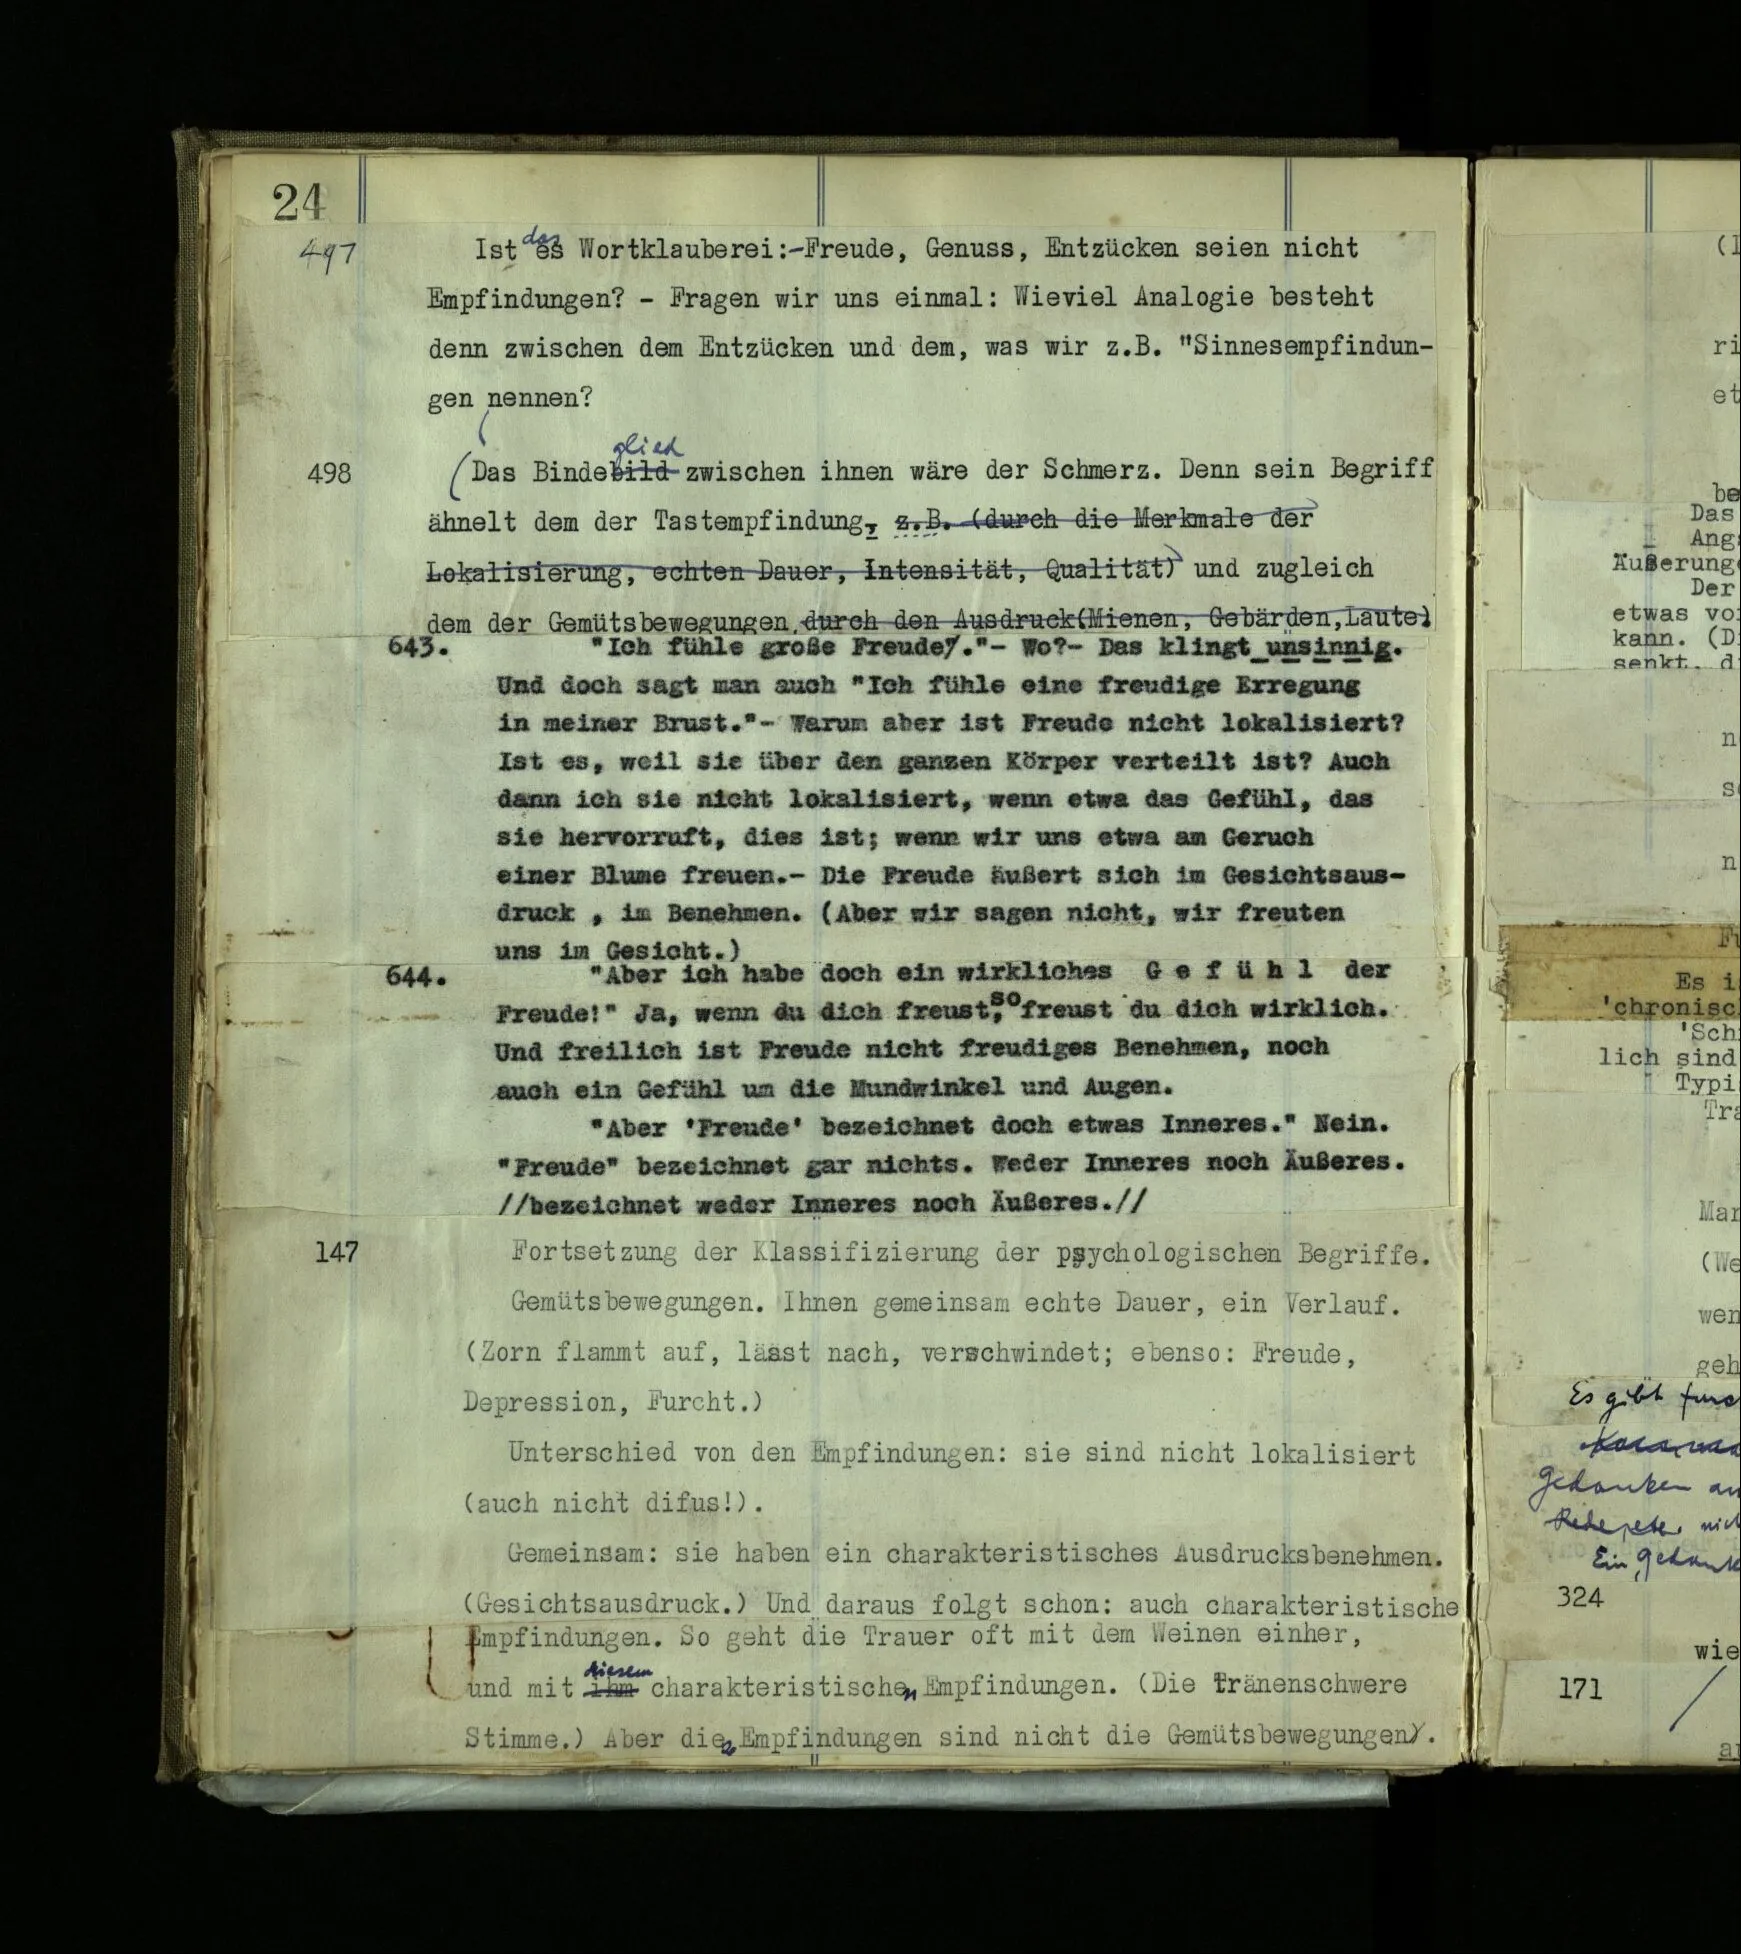 24
497 Ist das es Wortklauberei:-Freude, Genuss, Entzücken seien nicht
Empfindungen? - Fragen wir uns einmal: Wieviel Analogie besteht
denn zwischen dem Entzücken und dem, was wir z.B. "Sinnesempfindun-
gen nennen?
glied
498 (Das Bindebild zwischen ihnen wäre der Schmerz. Denn sein Begriff
ähnelt dem der Tastempfindung, z.B. (durch die Merkmale der
Lokalisierung, echten Dauer, Intensität, Qualität) und zugleich
dem der Gemütsbewegungen durch den Ausdruck(Mienen, Gebärden,Laute)
643. "Ich fühle große Freude/."- Wo?- Das klingt unsinnig.
Und doch sagt man auch "Ich fühle eine freudige Erregung
in meiner Brust."- Warum aber ist Freude nicht lokalisiert?
Ist es, weil sie über den ganzen Körper verteilt ist? Auch
dann ich sie nicht lokalisiert, wenn etwa das Gefühl, das
sie hervorruft, dies ist; wenn wir uns etwa am Geruch
einer Blume freuen.- Die Freude äußert sich im Gesichtsaus-
druck , im Benehmen. (Aber wir sagen nicht, wir freuten
uns im Gesicht.)
644. "Aber ich habe doch ein wirkliches G e f ü h l der
Freude!" Ja, wenn du dich freust, so freust du dich wirklich.
Und freilich ist Freude nicht freudiges Benehmen, noch
auch ein Gefühl um die Mundwinkel und Augen.
"Aber 'Freude' bezeichnet doch etwas Inneres." Nein.
"Freude" bezeichnet gar nichts. Weder Inneres noch Äußeres.
//bezeichnet weder Inneres noch Äußeres.//
147 Fortsetzung der Klassifizierung der psychologischen Begriffe.
Gemütsbewegungen. Ihnen gemeinsam echte Dauer, ein Verlauf.
(Zorn flammt auf, lässt nach, verschwindet; ebenso: Freude,
Depression, Furcht.)
Unterschied von den Empfindungen: sie sind nicht lokalisiert
(auch nicht difus!).
Gemeinsam: sie haben ein charakteristisches Ausdrucksbenehmen.
(Gesichtsausdruck.) Und daraus folgt schon: auch charakteristische
Empfindungen. So geht die Trauer oft mit dem Weinen einher,
diesem
und mit ihm charakteristischen Empfindungen. (Die tränenschwere
Stimme.) Aber die Empfindungen sind nicht die Gemütsbewegungen).
ri
et
be
Das
Ang
Äußerung
Der
etwas vo
kann. (D
senkt. d
n
s
n
Es i
'chronisc
'Sch
lich sind
Typi
Tra
Mar
(We
wen
geh
Es gibt
Gedanken
nich
Ein
324
wie
171